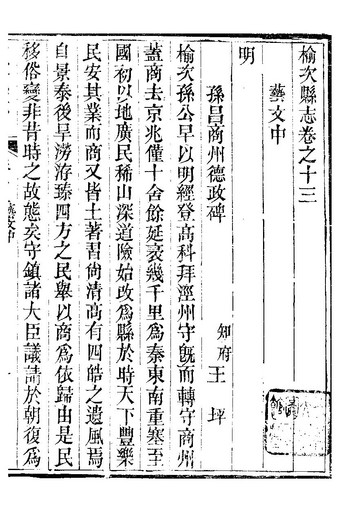 榆次縣志卷之十三
藝文中
明
孫昌商州德政碑
知府王坪
榆次孫公早以明經登高科拜涇州守旣而轉守商州
蓋商去京兆僅十舍餘延袤幾千里爲秦東南重塞至
國初以地廣民稀山深道險始改爲縣於時天下豐樂
民安其業而商又皆土著習尙清高有四皓之遺風焉
自景泰後旱澇洊臻四方之民舉以商爲依歸由是民
移俗變非昔時之故態矣守鎮諸大臣議請於朝復爲
藝文中